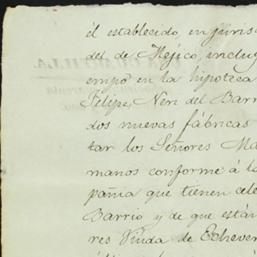 él establecido, en juris
del de Mejico, inclu
empo en la hipoteca
Felipe, Neri del Barr
dos nuevas fábricas
tar los Señores Ma
manos conforme á la
pañia que tienen cele
Barrio y de que están
res Viuda de Echever